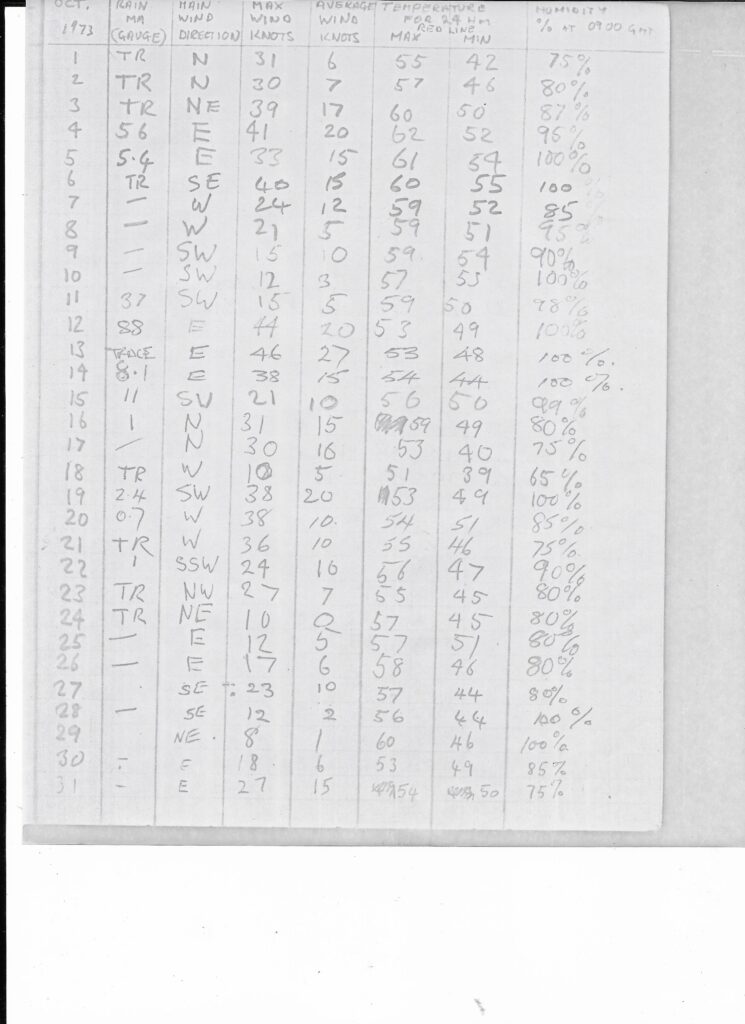 OCT. RAIN MAIN MAX AVERAGE TEMPERATURE HUMIDITY
MA WIND WIND WIND FOR 24 HR % AT 0900 GMT
1973 (GAUGE) DIRECTION KNOTS KNOTS RED LINE
MAX MIN
1 TR N 31 6 55 42 75%
2 TR N 30 7 57 46 80%
3 TR NE 39 17 60 50 87%
4 56 E 41 20 62 52 96%
5 5.4 E 33 15 61 54 100%
6 TR SE 40 15 60 55 100
7 — W 24 12 59 52 85
8 — W 21 5 59 51 95%
9 — SW 15 10 59 54 90%
10 — SW 12 3 57 53 100%
11 37 SW 15 5 59 50 98%
12 88 E 44 20 53 49 100%
13 TRACE E 46 27 53 48 100%.
14 8.1 E 38 15 54 44 100%.
15 11 SW 21 10 56 50 99%
16 1 N 31 15 59 49 80%
17 — N 30 16 53 40 75%
18 TR W 10 5 51 39 65%
19 2.4 SW 38 20 53 49 100%
20 0.7 W 38 10. 54 51 85%
21 TR W 36 10 55 46 75%
22 1 SSW 24 10 56 47 90%
23 TR NW 27 7 55 45 80%
24 TR NE 10 0 57 45 80%
25 — E 12 5 57 51 80%
26 — E 17 6 58 46 80%
27 SE 23 10 57 44 80%
28 — SE 12 2 56 44 100%
29 NE. 8 1 60 46 100%
30 - E 18 6 53 49 85%
31 - E 27 15 54 50 75%